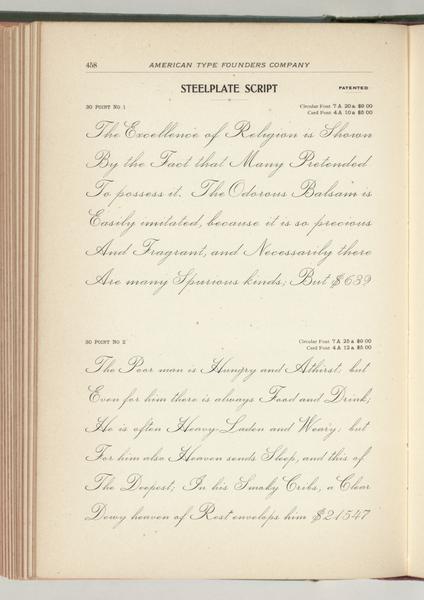 458
AMERICAN TYPE FOUNDERS COMPANY
STEELPLATE SCRIPT
PATENTED
30 POINT No 1
Circular Font 7 A 20 a $9 00
Card Font 4 A 10 a $5 00
The Excellence of Religion is Shown
By the Fact that Many Pretended
To possess it. The Odorous Balsam is
Easily imitated, because it is so precious
And Fragrant, and Necessarily there
Are many Spurious kinds; But $639
30 POINT No 2
Circular Font 7 A 25 a $9 00
Card Font 4 A 12 a $5 00
The Poor man is Hungry and Athirst; but
Even for him there is always Food and Drink;
He is often Heavy-Laden and Weary; but
For him also Heaven sends Sleep, and this of
The Deepest; In his Smoky Cribs, a Clear
Dewy heaven of Rest envelops him $21547